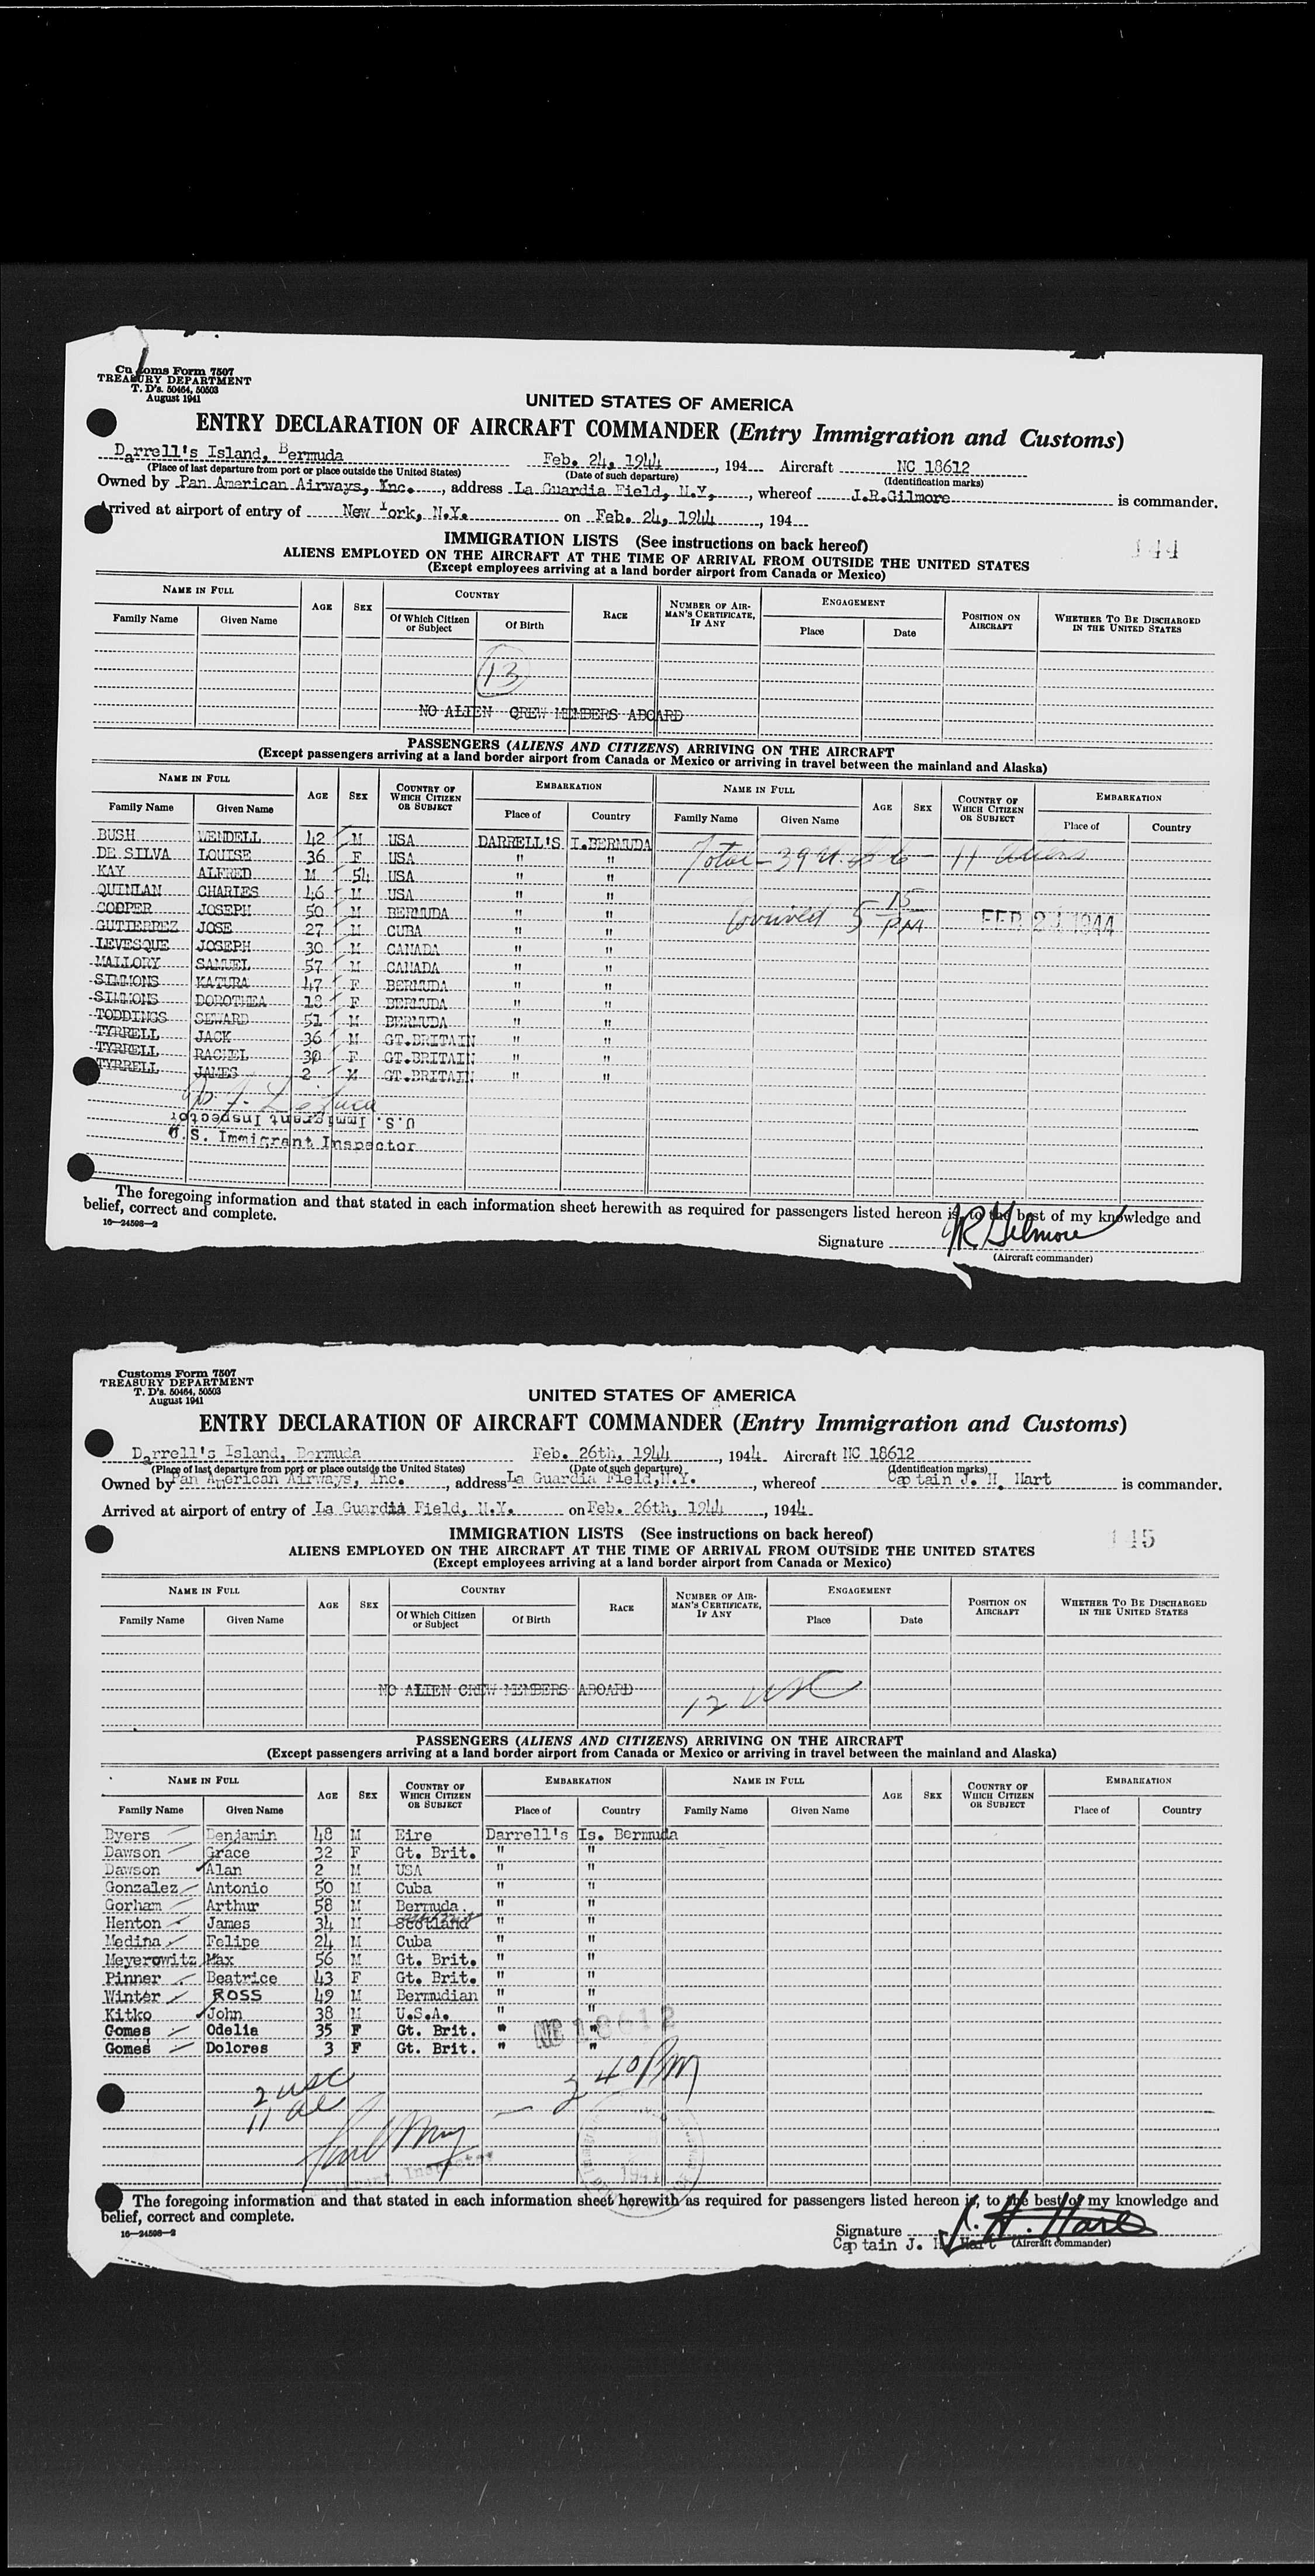 Customs Form 7507
TREASURY DEPARTMENT
T. D's. 50464, 50503
August 1941
UNITED STATES OF AMERICA
ENTRY DECLARATION OF AIRCRAFT COMMANDER (Entry Immigration and Customs)
Darrell's Island, Bermuda Feb. 24, 1944, 194 Aircraft NC 18612
(Place of last departure from port or place outside the United States) (Date of such departure) (Identification marks)
Owned by Pan American Airways, Inc., address La Guardia Field, N.Y., whereof J.R.Gilmore is commander.
Arrived at airport of entry of New York, N.Y. on Feb. 24, 1944, 194
IMMIGRATION LISTS (See instructions on back hereof)
144
ALIENS EMPLOYED ON THE AIRCRAFT AT THE TIME OF ARRIVAL FROM OUTSIDE THE UNITED STATES
(Except employees arriving at a land border airport from Canada or Mexico)
NAME IN FULL AGE SEX COUNTRY RACE NUMBER OF AIRMAN'S CERTIFICATE, IF ANY ENGAGEMENT POSITION ON AIRCRAFT WHETHER TO BE DISCHARGED IN THE UNITED STATES
Family Name Given Name Of Which Citizen or Subject Of Birth Place Date
13
NO ALIEN CREW MEMBERS ABOARD
PASSENGERS (ALIENS AND CITIZENS) ARRIVING ON THE AIRCRAFT
(Except passengers arriving at a land border airport from Canada or Mexico or arriving in travel between the mainland and Alaska)
NAME IN FULL AGE SEX COUNTRY OF WHICH CITIZEN OR SUBJECT EMBARKATION NAME IN FULL AGE SEX COUNTRY OF WHICH CITIZEN OR SUBJECT EMBARKATION
Family Name Given Name Place of Country Family Name Given Name Place of Country
BUSH WENDELL 42 M USA DARRELL'S I.BERMUDA
DE SILVA LOUISE 36 F USA " " Total - 11 aliens
KAY ALFRED M 54 USA " "
QUINLAN CHARLES 46 M USA " "
COOPER JOSEPH 50 M BERMUDA " " arrived 5 15 PM FEB 24 1944
GUTIERREZ JOSE 27 M CUBA " "
LEVESQUE JOSEPH 30 M CANADA " "
MALLORY SAMUEL 57 M CANADA " "
SIMMONS KATURA 47 F BERMUDA " "
SIMMONS DOROTHEA 18 F BERMUDA " "
TODDINGS SEWARD 51 M BERMUDA " "
TYRRELL JACK 36 M GT.BRITAIN " "
TYRRELL RACHEL 30 F GT.BRITAIN " "
TYRRELL JAMES 2 M GT.BRITAIN " "
U.S. Immigrant Inspector
U.S. Immigrant Inspector
The foregoing information and that stated in each information sheet herewith as required for passengers listed hereon is, to the best of my knowledge and
belief, correct and complete.
16—24598—2
Signature JR Gilmore
(Aircraft commander)
Customs Form 7507
TREASURY DEPARTMENT
T. D's. 50464, 50503
August 1941
UNITED STATES OF AMERICA
ENTRY DECLARATION OF AIRCRAFT COMMANDER (Entry Immigration and Customs)
Darrell's Island, Bermuda Feb. 26th, 1944, 1944 Aircraft NC 18612
(Place of last departure from port or place outside the United States) (Date of such departure) (Identification marks)
Owned by Pan American Airways, Inc., address La Guardia Field, N.Y., whereof Captain J. H. Hart is commander.
Arrived at airport of entry of La Guardia Field, N.Y. on Feb. 26th, 1944, 1944
IMMIGRATION LISTS (See instructions on back hereof)
145
ALIENS EMPLOYED ON THE AIRCRAFT AT THE TIME OF ARRIVAL FROM OUTSIDE THE UNITED STATES
(Except employees arriving at a land border airport from Canada or Mexico)
NAME IN FULL AGE SEX COUNTRY RACE NUMBER OF AIRMAN'S CERTIFICATE, IF ANY ENGAGEMENT POSITION ON AIRCRAFT WHETHER TO BE DISCHARGED IN THE UNITED STATES
Family Name Given Name Of Which Citizen or Subject Of Birth Place Date
NO ALIEN CREW MEMBERS ABOARD 12 USC
PASSENGERS (ALIENS AND CITIZENS) ARRIVING ON THE AIRCRAFT
(Except passengers arriving at a land border airport from Canada or Mexico or arriving in travel between the mainland and Alaska)
NAME IN FULL AGE SEX COUNTRY OF WHICH CITIZEN OR SUBJECT EMBARKATION NAME IN FULL AGE SEX COUNTRY OF WHICH CITIZEN OR SUBJECT EMBARKATION
Family Name Given Name Place of Country Family Name Given Name Place of Country
Byers Benjamin 48 M Eire Darrell's Is. Bermuda
Dawson Grace 32 F Gt. Brit. " "
Dawson Alan 2 M USA " "
Gonzalez Antonio 50 M Cuba " "
Gorham Arthur 58 M Bermuda " "
Henton James 34 M Scotland " "
Medina Felipe 24 M Cuba " "
Meyerowitz Max 56 M Gt. Brit. " "
Pinner Beatrice 43 F Gt. Brit. " "
Winter ROSS 49 M Bermudian " "
Kitko John 38 M U.S.A. " "
Gomes Odelia 35 F Gt. Brit. " " NC 18612
Gomes Dolores 3 F Gt. Brit. " "
2 USC
11 al
3 40 PM
Immigrant Inspector
The foregoing information and that stated in each information sheet herewith as required for passengers listed hereon is, to the best of my knowledge and
belief, correct and complete.
16—24598—2
Signature J. H. Hart
Captain J. H. Hart (Aircraft commander)